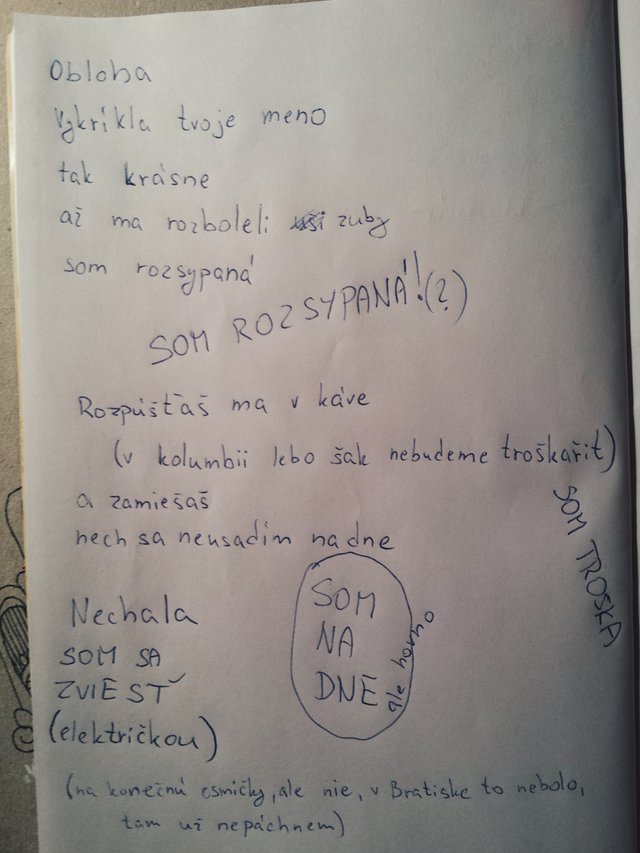 Obloha
Vykríkla tvoje meno
tak krásne
až ma rozboleli uši zuby
som rozsypaná
SOM ROZSYPANÁ!(?)
Rozpúšťaš ma v káve
(v kolumbii lebo šak nebudeme troškařit)
a zamiešaš
nech sa neusadím na dne
SOM TROSKA
Nechala
SOM SA
ZVIESŤ
(električkou)
SOM
NA
DNE
ale horno
(na konečnú osmičky, ale nie, v Bratiske to nebolo,
tam už nepáchnem)